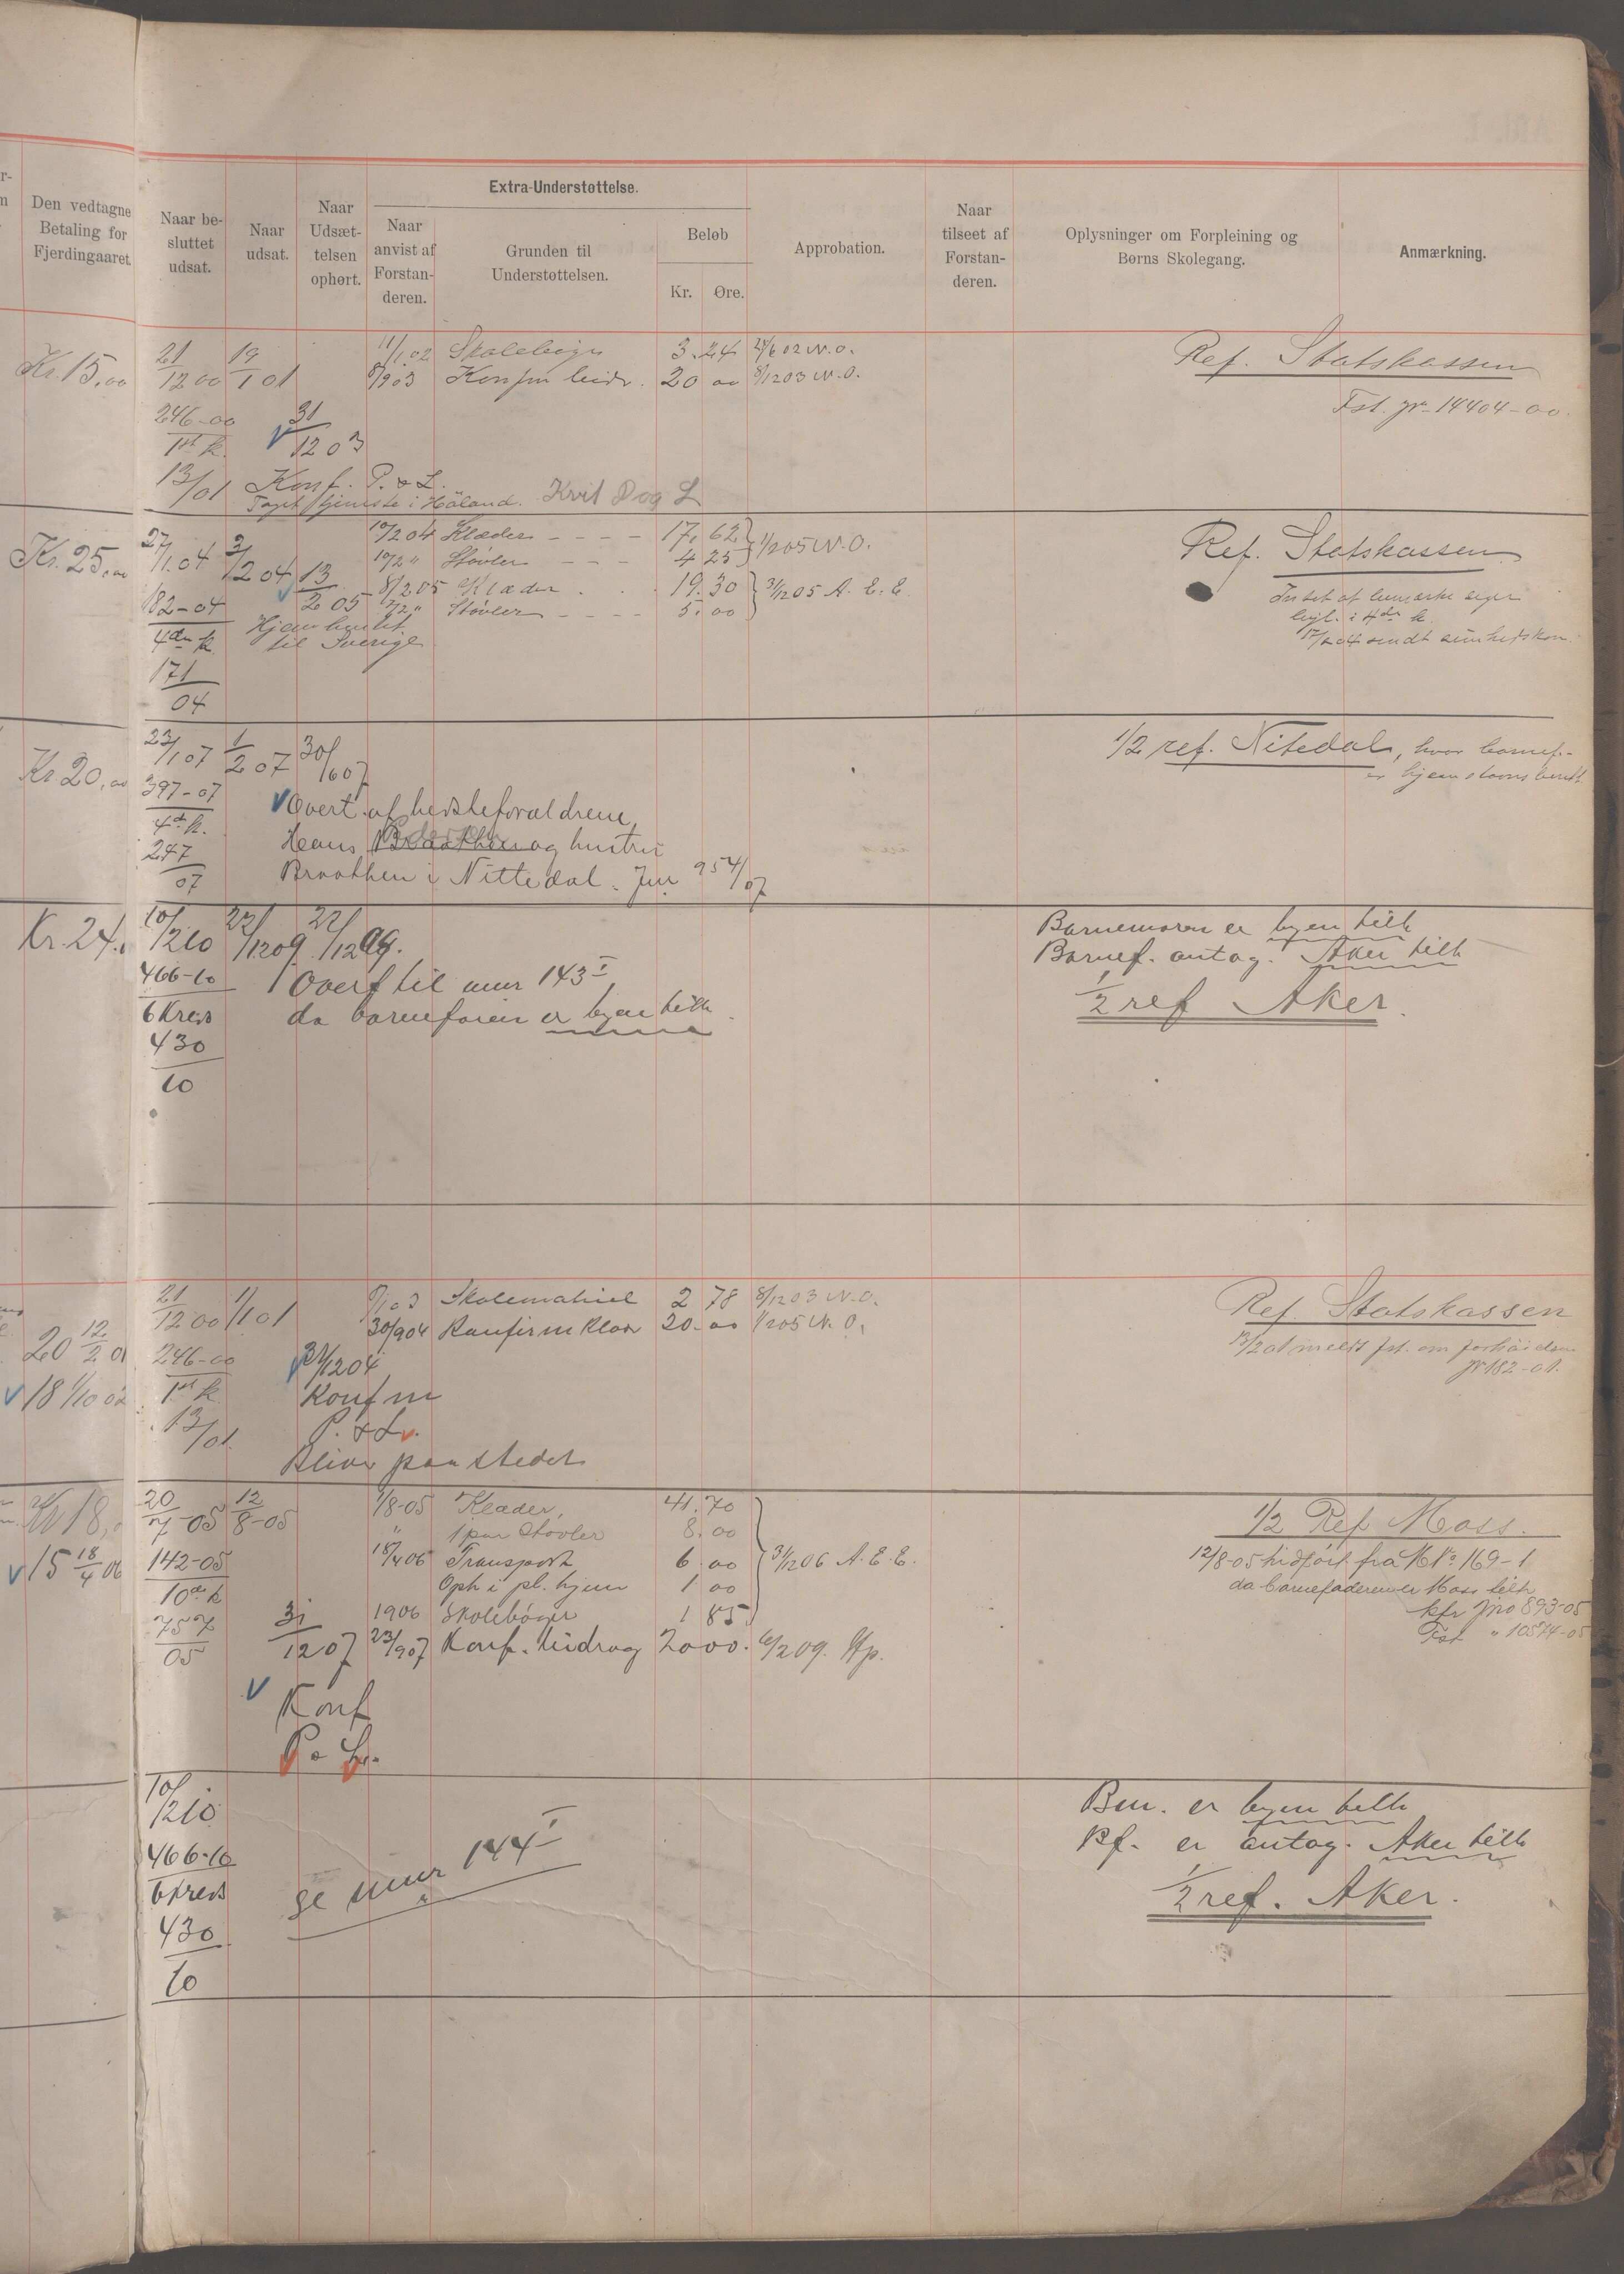 Den vedtagne
Betaling for
Fjerdingaaret
Naar be-
sluttet
udsat.
Naar
udsat.
Naar
Udsæt-
telsen
ophørt.
Extra-Understøttelse.
Naar
anvist af
Forstan-
deren.
Grunden til
Understøttelsen.
Beløb
Kr. Øre.
Approbation.
Naar
tilseet af
Forstan-
deren.
Oplysninger om Forpleining og
Børns Skolegang.
Anmærkning.
Kr. 15,00
21/12 00 19/1 01 11/1 02 Skolebøger 3.24 24/6 02 N.O.
8/9 03 Konfm bidr. 20 00 8/12 03 N.O.
Ref. Statskassen
Fst. jr. 14404-00.
246-00
1ste k. 31/12 03
13/01 Konf. P. & L.
Taget tjeneste i Høland. Kvit P og L
Kr. 25,00
27/1 04 3/2 04 13/2 05 10/2 04 Klæder 17.62 1/2 05 N.O.
10/2 " Støvler 4 25
8/2 05 Klæder 19.30 31/12 05 A. E. E.
7/2 " Støvler 5.00
Ref. Statskassen
182-04
4de k. Hjemhentet
til Sverige
171/04
Kr 20,00
23/1 07 1/2 07 30/6 07
1/2 ref. Nitedal, hvor barnef.
397-07
4de k.
247/07
Overt. af bedsteforældrene
Hans og hustru
Braathen i Nittedal. Jnr 954/07
Kr. 24.
10/2 10 22/12 09 22/12 09.
466-10
6 Kreds
430/10
Overf til mur 143 I
da barnefaren er byen tilh.
Barnemoren er byen tilh
Barnef. antag. Aker tilh
1/2 ref Aker.
20 12/2 01
18 1/10 02
21/12 00 1/1 01 Skolematriel 2 78 8/12 03 N.O.
30/9 04 Konfirm Klær 20.00 1/2 05 N.O.
Ref. Statskassen
jr 182-01.
246-00
1ste k.
13/01
31/12 04
Konfm
P. & L.
Bliver paa stedet
Kr 18,
15 18/4 06
20/7-05 12/8-05 1/8-05 Klæder, 41.70
" 1 par Støvler 8.00
18/4 06 Transport 6.00 31/12 06 A. E. E.
Oph i pl. hjem 1 00
1906 Skolebøger 1 85
23/9 07 Konf. bidrag 20 00. 6/2 09. Hp.
142-05
10de k
757/05
31/12 07
Konf
P. & L.
1/2 Ref Moss.
12/8-05 hidført fra No 169-1
da barnefaderen er Moss tilh
kfr Jno 893-05
Fst " 10574-05
10/2 10
466-10
6 Kreds
430/10
se mur 144 I
Bm. er byen tilh
Bf. er antag. Aker tilh
1/2 ref. Aker.